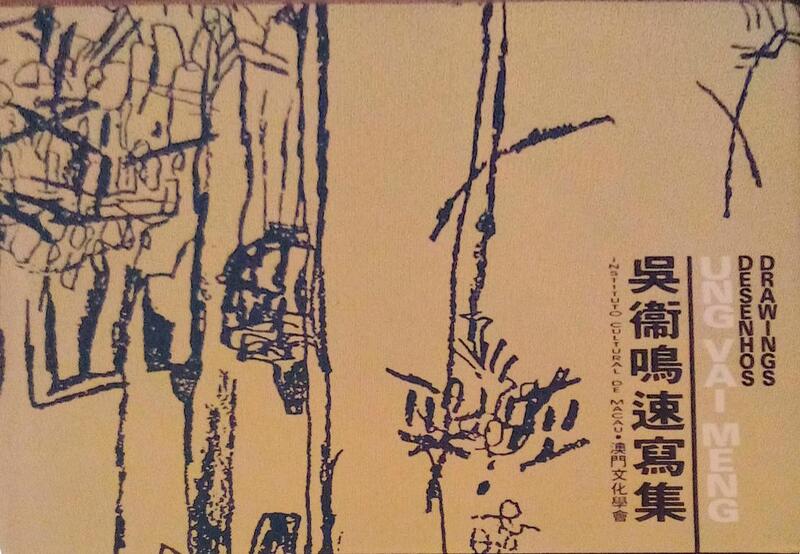 DRAWINGS
DESENHOS
UNG VAI MENG
吳衞鳴速寫集
INSTITUTO CULTURAL DE MACAU • 澳門文化學會